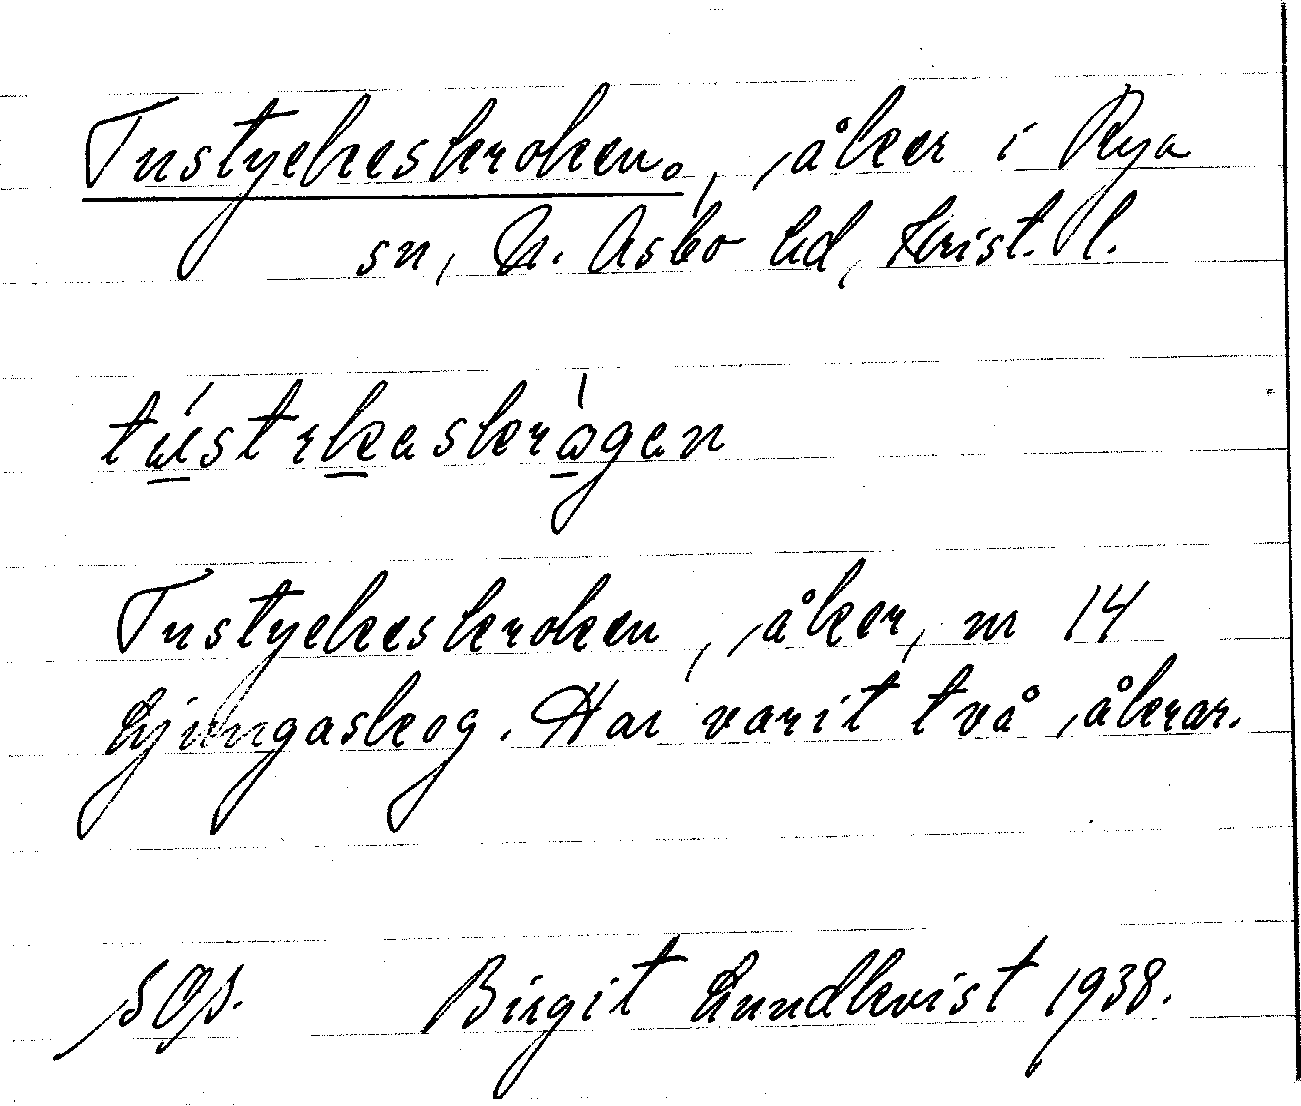 Tustyckeskroken., åker i Rya
sn, N. Åsbo hd, Krist. l.
tústrkaskrågan
Tustyckeskroken, åker, nr 14
Ljungaskog. Har varit två åkrar.
SOS. Birgit Lundkvist 1938.